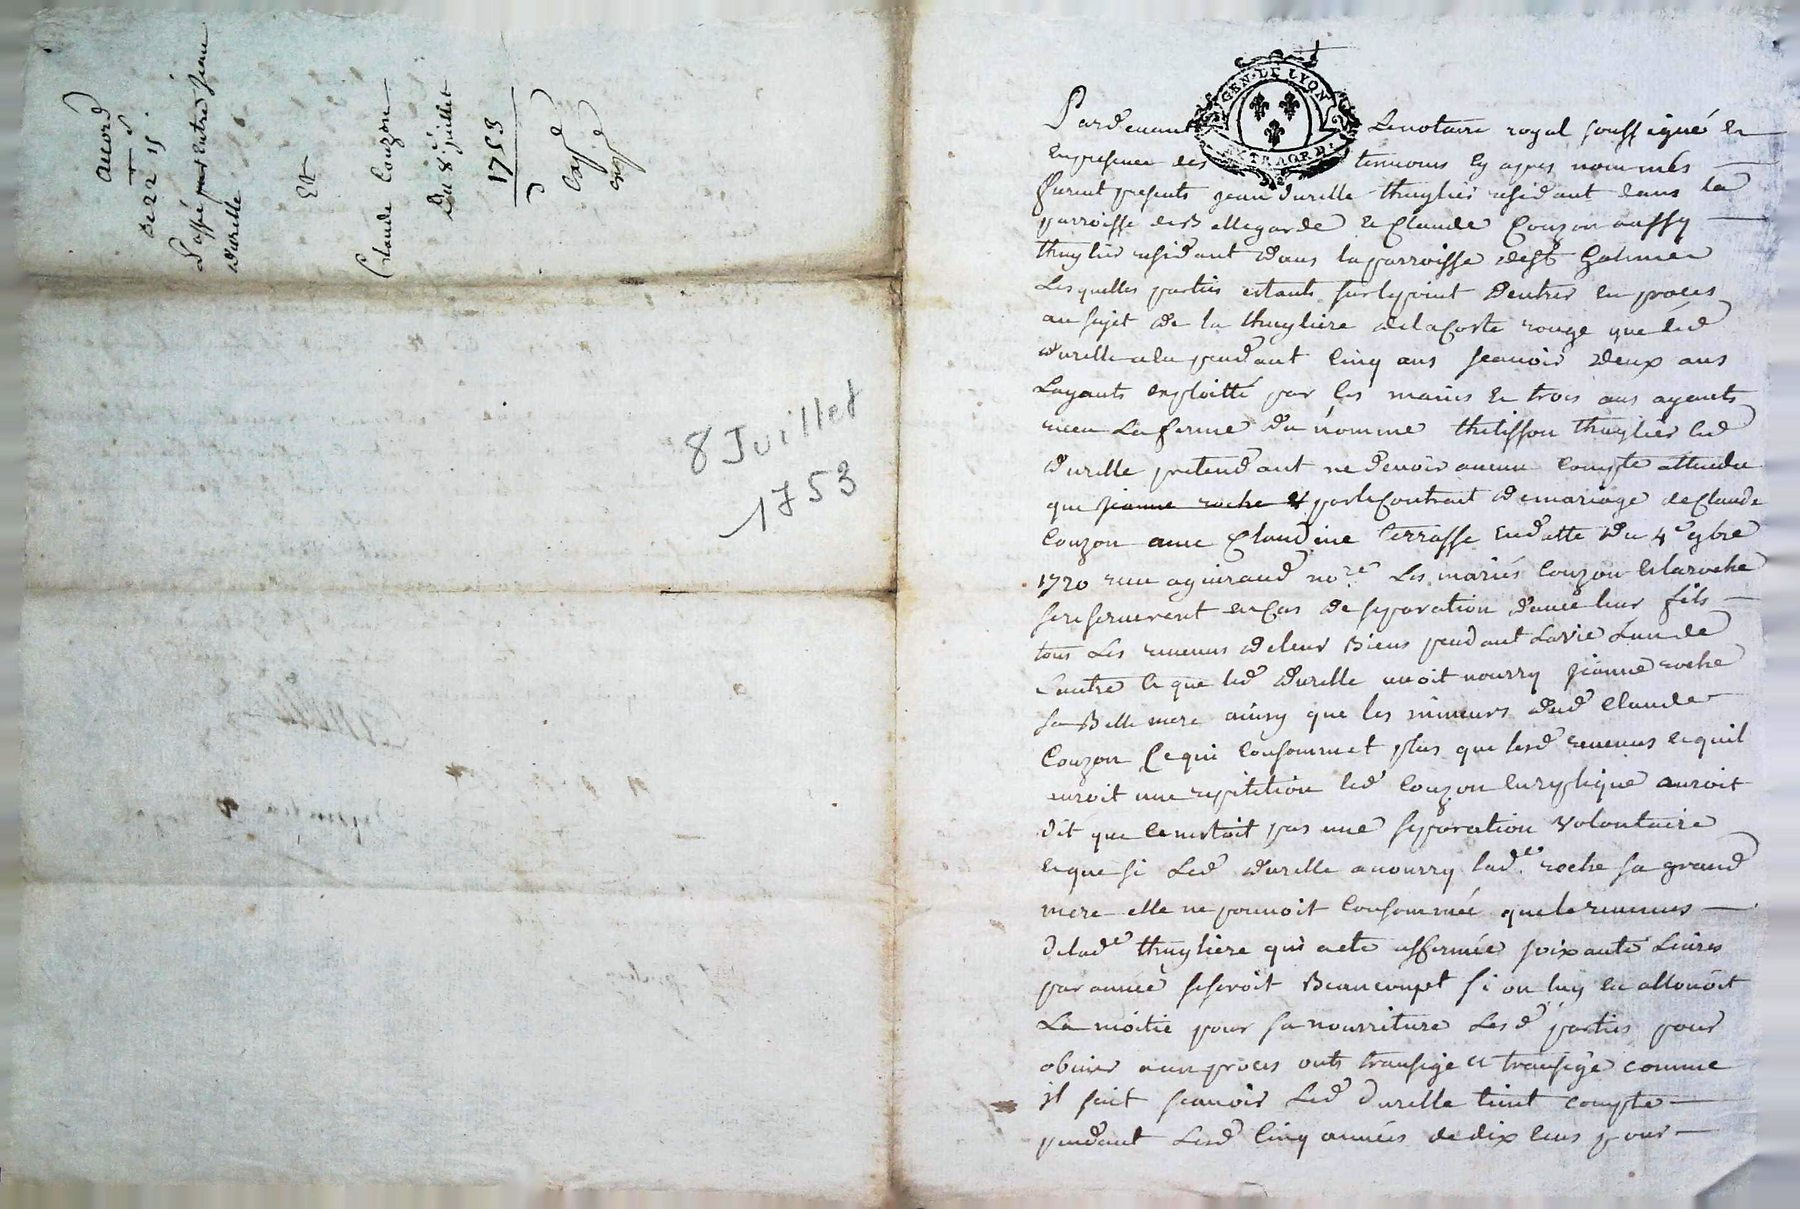 accord
de 22 lt 15 s
Passé entre Jean
Durelle
Et
Claude Couzon
Du 8e juillet
1753
Exp.e
exp.e
8 Juillet
1753
GEN. DE LYON
EXTRAORD.
Pardevant Le notaire royal soussigné et
En presence des temoins cy apres nommés
furent presents jean durelle thuylier residant dans la
parroisse de Bellegarde et Claude Couzon aussy
thuylier residant dans la parroisse de st Galmier
Lesquelles parties estants sur le point d'entrer en proces
au sujet de la thuyliere de la Coste rouge que led
durelle a pendant cinq ans scauoir deux ans
Layants exploitté par ses mains et trois ans ayants
receu La ferme du nommé thuylier led
durelle pretendant ne deuoir aucun compte attendu
que jeanne roche et par le Contrait de mariage de Claude
Couzon auec Claudine terrasse en datte du 4e
1720 receu no.re Les mariés Couzon et laroche
se reseruerent en Cas de separation d'auec leur fils
tous Les reuenus de leur Biens pendant La vie Lun de
Lautre et que led durelle auoit nourry jeanne roche
sa Belle mere ainsy que les mineurs dud Claude
Couzon Ce qui Consommet plus que lesd reuenus et quil
auroit une repetition led Couzon en replique auroit
dit que ce nestoit pas une separation volontaire
et que si Led durelle a nourry lad.e roche sa grand
mere elle ne pouuoit Consommée que le reuenus
de lad.e thuyliere qui a ete affermée soixante Liures
par année se seroit Beaucoupt si on luy en allouoit
La moitié pour sa nourriture Lesd parties pour
obuier a un proces onts transigé et transige comme
il suit scauoir Led durelle tient compte
pendant Lesd Cinq années de dix ecus pour